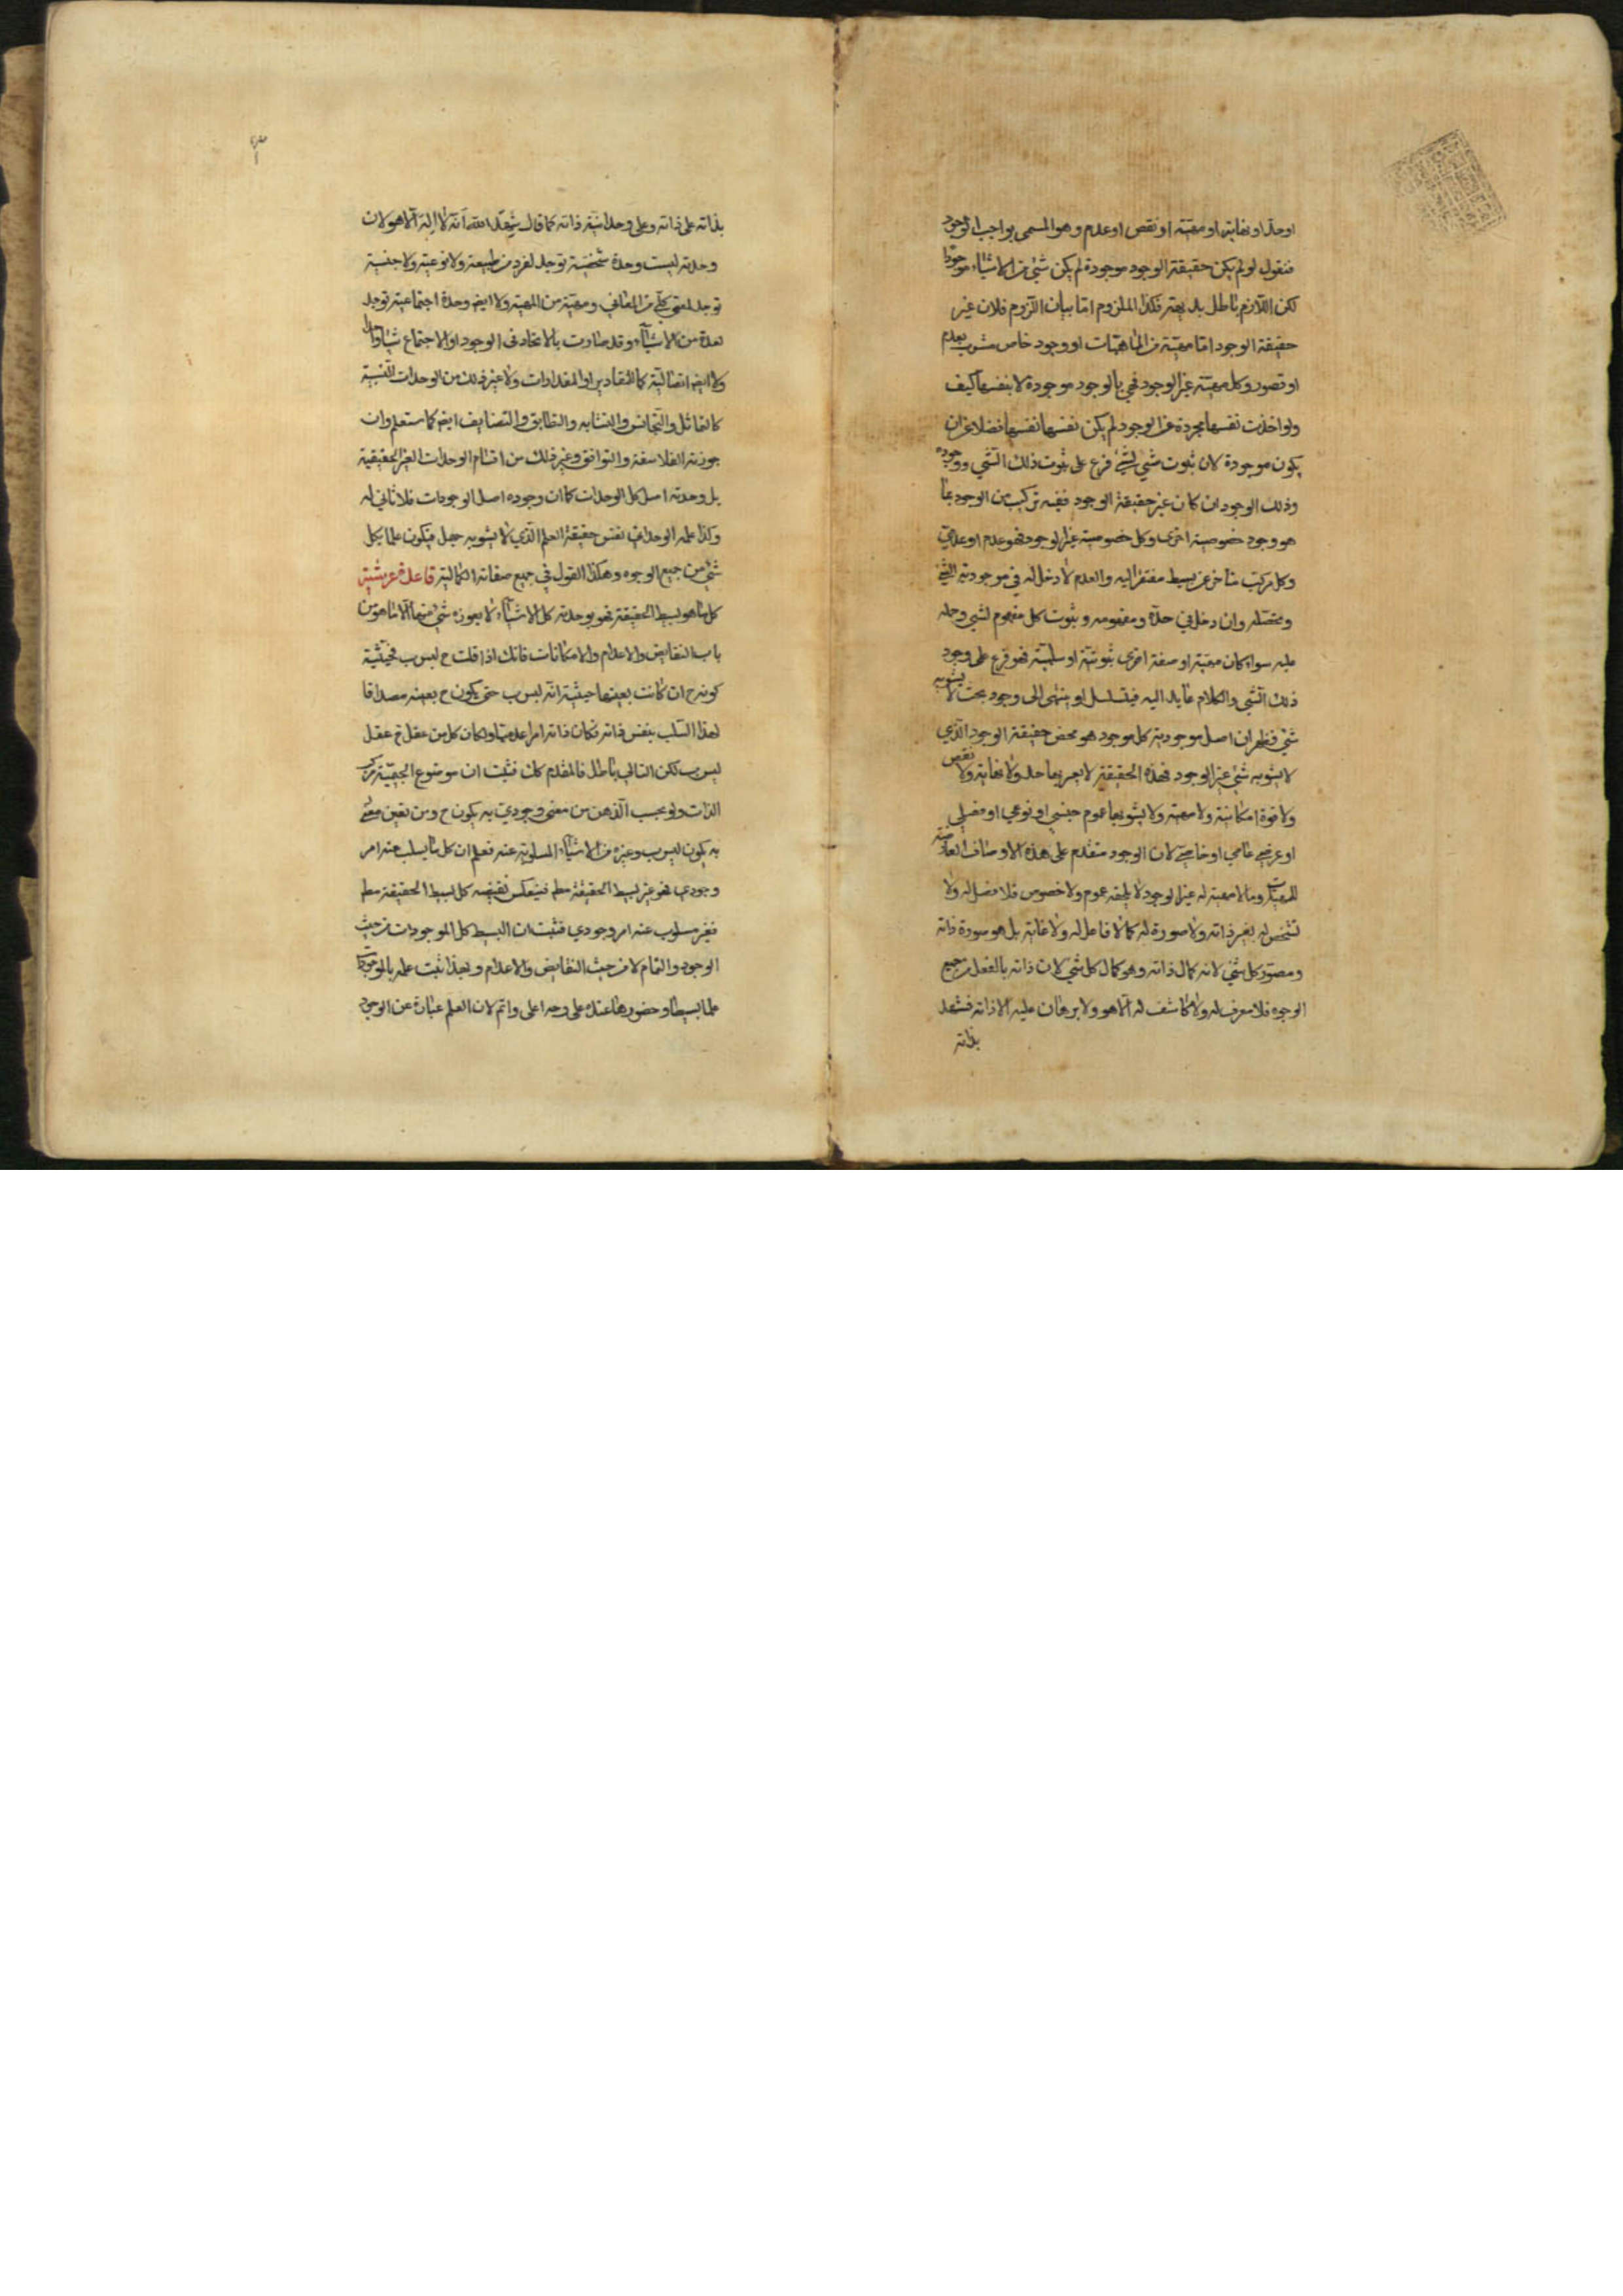 او حد او نهاية او مهية او نقص او عدم وهو المسمى بواجب الوجود
فنقول لو لم يكن حقيقة الوجود موجودة لم يكن شئ من الاشياء موجودا
لكن اللازم باطل بديهة فكذا الملزوم اما بيان اللزوم فلان غير
حقيقة الوجود اما مهية من الماهيات او وجود خاص مشوب بعدم
او قصور وكل مهية غير الوجود فهي بالوجود موجودة لا بنفسها كيف
ولو اخذت نفسها مجردة عن الوجود لم يكن نفسها نفسها فضلا عن ان
يكون موجودة لان ثبوت شئ لشئ فرع على ثبوت ذلك الشئ ووجوده
وذلك الوجود ان كان غير حقيقة الوجود ففيه تركيب من الوجود بما
هو وجود خصوصية اخرى وكل خصوصية غير الوجود فهو عدم او عدمي
وكل مركب متاخر عن بسيط مفتقر اليه والعدم لا دخل له في موجودية الشئ
وتحصله وان دخل في حده ومفهومه وثبوت كل مفهوم لشئ وحمله
عليه سواء كان مهية او صفة اخرى ثبوتية او سلبية فهو فرع على وجود
ذلك الشئ والكلام عايد اليه فيتسلسل او ينتهى الى وجود بحت لا يشوبه
شئ فظهر ان اصل موجودية كل موجود هو محض حقيقة الوجود الذي
لا يشوبه شئ غير الوجود فهذه الحقيقة لا يعتريها حد ولا نهاية ولا نقص
ولا قوة امكانية ولا مهية ولا يشوبها عموم جنسي او نوعي او فصلي
او عرضي عامي او خاصي لان الوجود متقدم على هذه الاوصاف العارضة
للمهيات وما لا مهية له غير الوجود لا يلحقه عموم ولا خصوص فلا فصل له ولا
تشخص له بغير ذاته ولا صورة له كما لا فاعل له ولا غاية بل هو صورة ذاته
ومصور كل شئ لانه كمال ذاته وهو كمال كل شئ لان ذاته بالفعل من جميع
الوجوه فلا معرف له ولا كاشف له الا هو ولا برهان عليه الا ذاته فشهد
بذاته
بذاته على ذاته وعلى وحدانية ذاته كما قال شهد الله انه لا اله الا هو لان
وحدته ليست وحدة شخصية توجد لفرد من طبيعة ولا نوعية ولا جنسية
توجد لمعنى كلي من المعاني ومهية من المهية ولا ايضا وحدة اجتماعية توجد
لعدة من الاشياء وقد صارت بالاتحاد في الوجود او الاجتماع شيئا واحدا
ولا ايضا اتصالية كما للمقادير او المقدارات ولا غير ذلك من الوحدات النسبية
كالتماثل والتجانس والتشابه والتطابق والتضايف ايضا كما ستعلم وان
جوزته الفلاسفة والتوافق وغير ذلك من اقسام الوحدات الغير الحقيقية
بل وحدته اصل كل الوحدات كما ان وجوده اصل الوجودات فلا ثاني له
وكذا علمه الوحداني نفس حقيقة العلم الذي لا يشوبه جهل فيكون علما بكل
شئ من جميع الوجوه وهكذا القول في جميع صفاته الكمالية قاعدة عرشية
كل ما هو بسيط الحقيقة فهو بوحدته كل الاشياء لا يعوزه شئ منها الا ما هو من
باب النقايض والاعدام والامكانات فانك اذا قلت ج ليس ب فحيثية
كونه ج ان كانت بعينها حيثية انه ليس ب حتى يكون ج بعينه مصداقا
لهذا السلب بنفس ذاته فكان ذاته امرا عدميا ولكان كل من عقل ج عقل
ليس ب لكن التالي باطل فالمقدم كك فثبت ان موضوع الجيمية مركب
الذات ولو بحسب الذهن من معنى وجودي به يكون ج ومن تعين معنى
به يكون ليس ب وغيره من الاشياء المسلوبة عنه فعلم ان كل ما يسلب عنه امر
وجودي فهو غير بسيط الحقيقة مطم فينعكس نقيضه كل بسيط الحقيقة مطم
فغير مسلوب عنه امر وجودي فثبت ان البسيط كل الموجودات من حيث
الوجود والتمام لا من حيث النقايض والاعدام وبهذا ثبت علمه بالموجودات
علما بسيطا وحضورها عنده على وجه اعلى واتم لان العلم عبارة عن الوجود